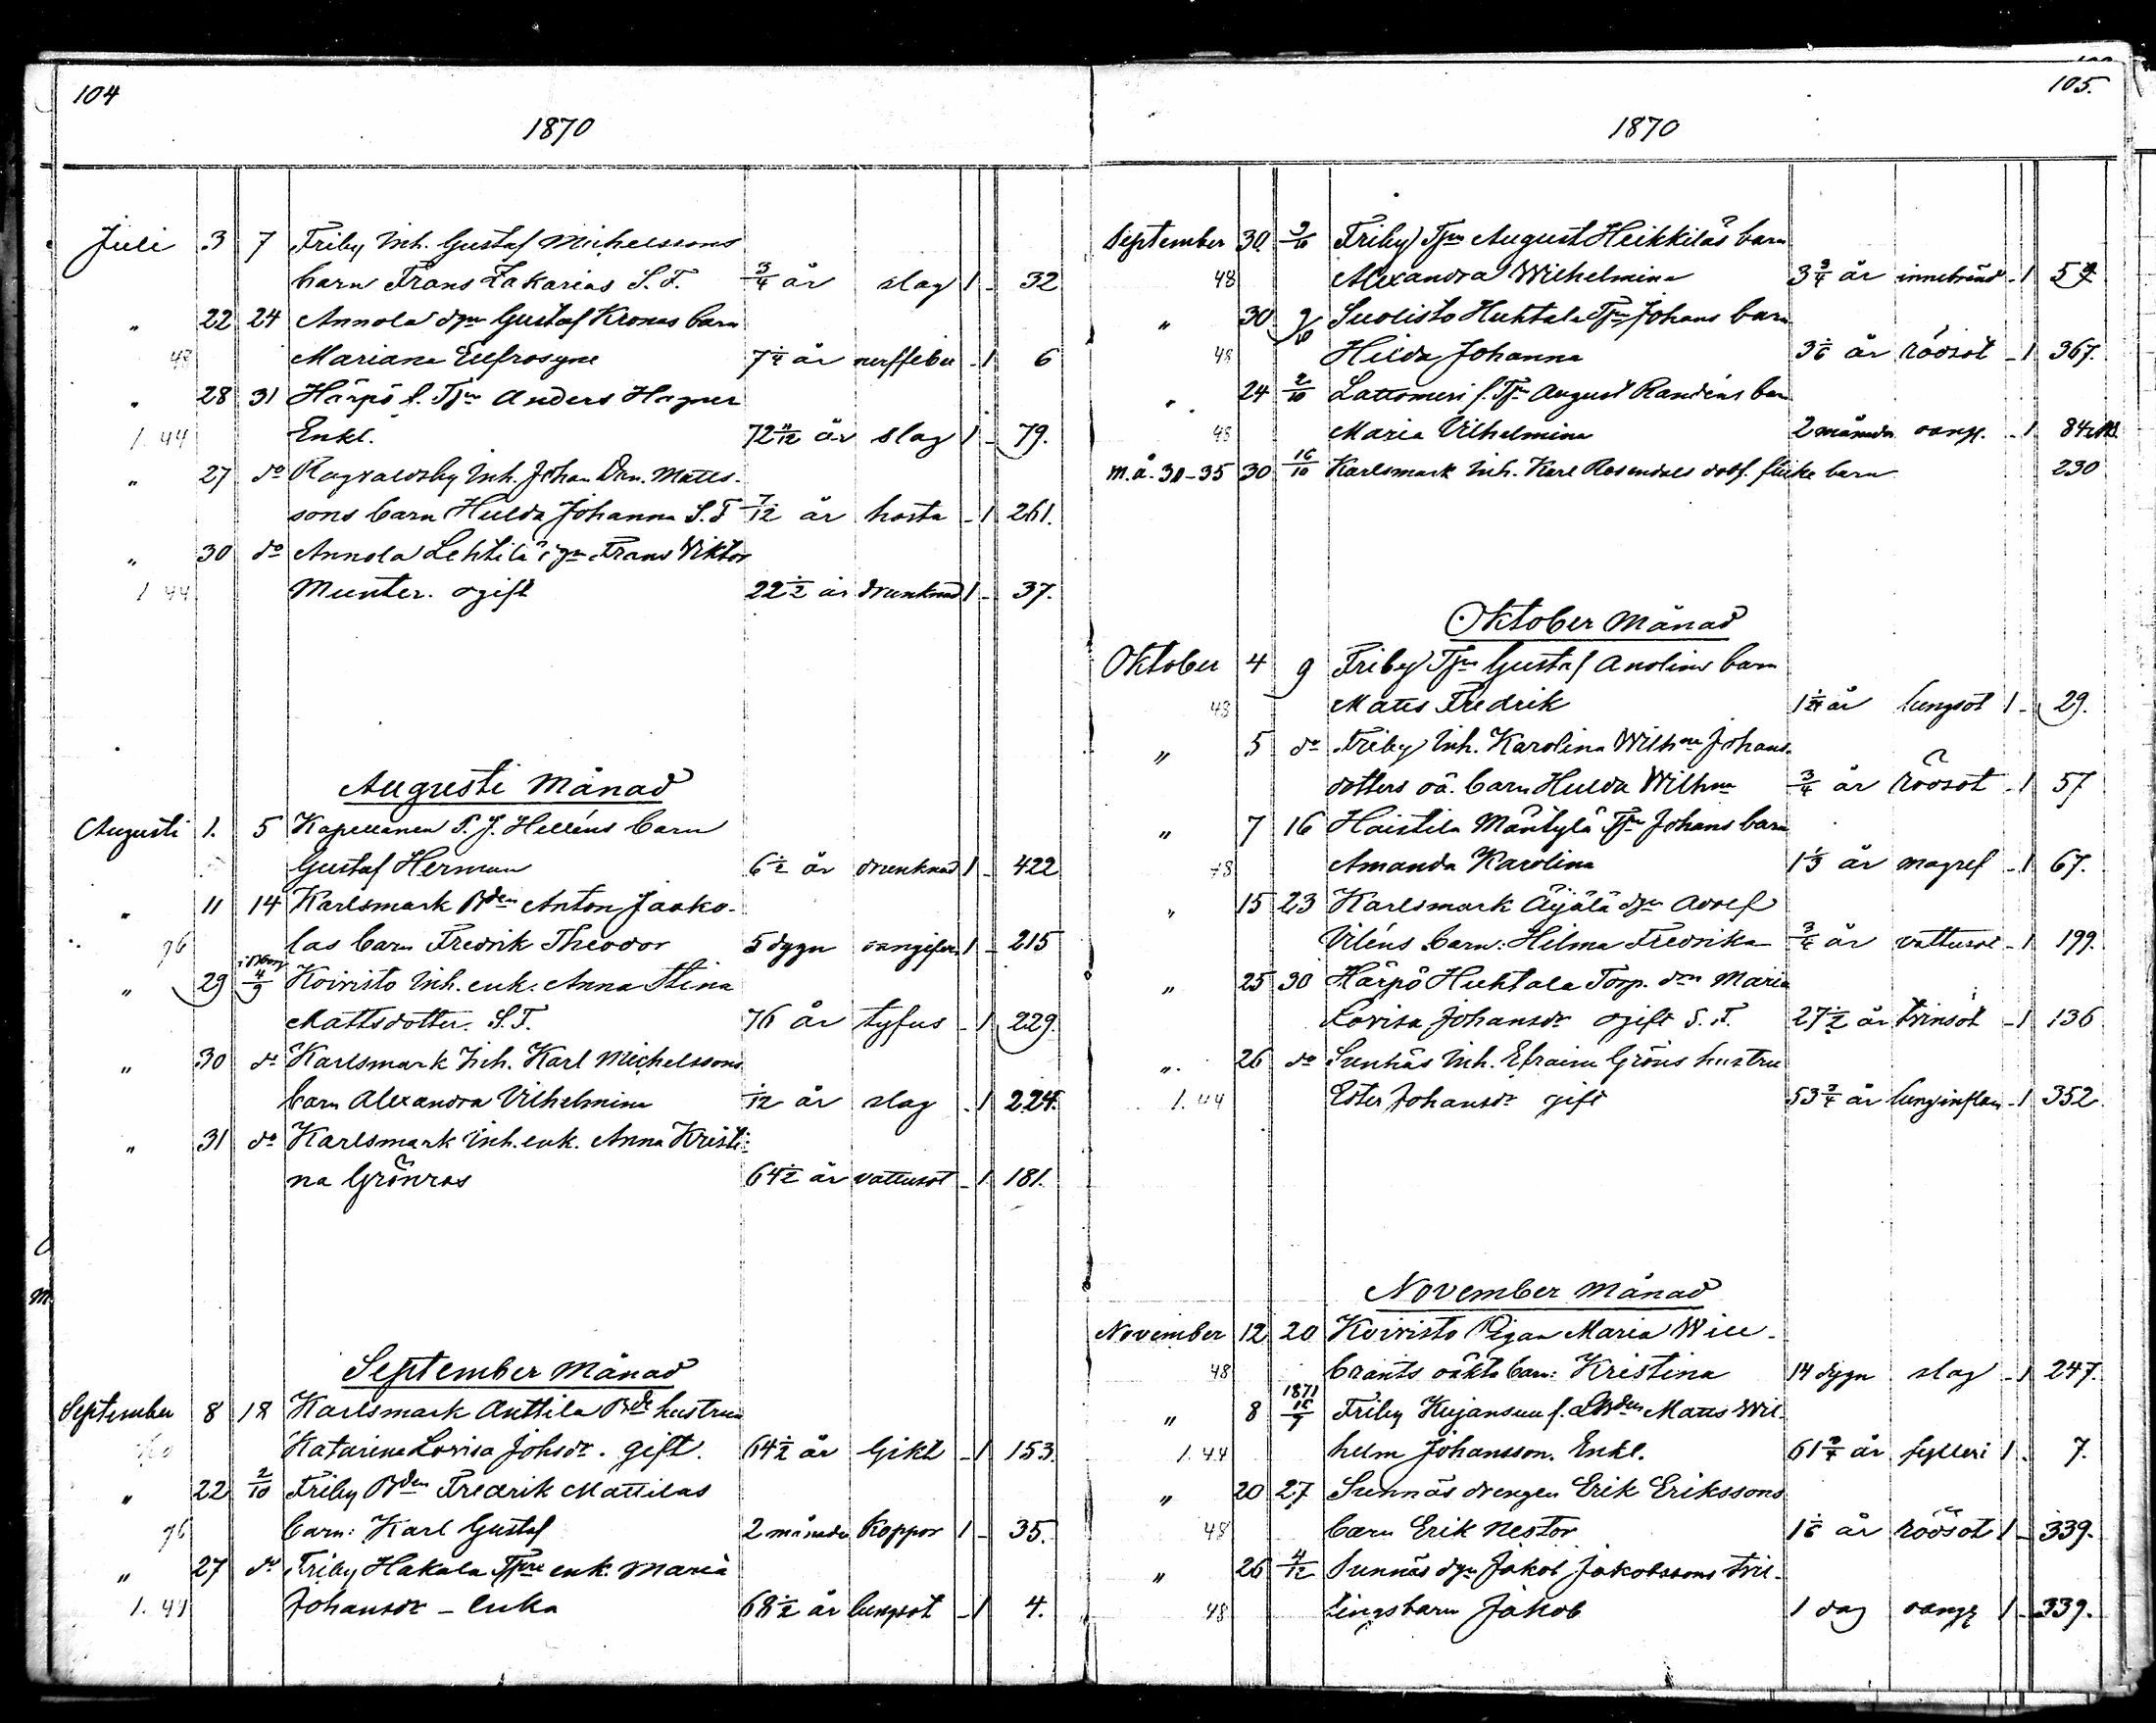 104
1870
Juli 3 7 Friby Inh. Gustaf Michelssons
barn Frans Zakarias S. F. 3/4 år slag 1 - 32
" 22 24 Annola dgn Gustaf Kronas barn
48 Mariana Eufrosyne 7 1/4 år nerffeber - 1 6
" 28 31 Härpö f. Tjn Anders Hagner
1. 44 Enkl. 72 11/12 år slag 1 - 79.
" 27 do Ragvaldsby Inh. Johan Dan. Matts-
sons barn Hulda Johanna S. F 7/12 år hosta - 1 261.
" 30 do Annola Lehtilä Frans Viktor
1 44 Munter. ogift 22 1/2 år drunknad 1 - 37.
Augusti Månad
Augusti 1. 5 Kapellanen F. J. Helléns barn
Gustaf Herman 6 1/2 år drunknad 1 - 422
" 11 14 Karlsmark Bden Anton Jaako-
96 las barn Fredrik Theodor 5 dygn 1 - 215
" 29 4/9 Koivisto Inh. enk. Anna Stina
Mattsdotter. S. F. 76 år tyfus - 1 229.
" 30 do Karlsmark Inh. Karl Michelssons
barn Alexandra Vilhelmina 1/12 år slag - 1 224.
" 31 do Karlsmark Inh. enk. Anna Kristi-
na Grönros 64 1/2 år vattusot - 1 181.
September Månad
September 8 18 Karlsmark Anttila Bde hustru
Katarina Lovisa Johsdr. gift. 64 1/2 år Gikt - 1 153.
" 22 2/10 Friby Bden Fredrik Mattilas
96 barn: Karl Gustaf 2 månader Koppor 1 - 35.
" 27 do Friby Hakala enk. Maria
1. 44 Johansdr - enka 68 1/2 år lungsot - 1 4.
105.
1870
September 30 9/10 Friby Tjn August Heikkiläs barn
48 Alexandra Wilhelmina 3 3/4 år - 1
" 30 9/10 Suolisto Huhtala Tjn Johans barn
48 Hilda Johanna 3 1/6 år rödsot - 1 367.
" 24 2/10 Lattomeri f. Tjn August Randéns barn
48 Maria Vilhelmina 2 månader oange. - 1
m. å. 30-35 30 16/10 Karlsmark Inh. Karl Rosendals dödf. flicke barn 230
Oktober Månad
Oktober 4 9 Friby Tjn Gustaf Anolins barn
48 Matts Fredrik år lungsot 1 - 29.
" 5 do Friby Inh. Karolina Wilhna Johans-
dotters oä. barn Hulda Wilhna 3/4 år Rödsot - 1 57
" 7 16 Haistila Mäntylä Tjn Johans barn
48 Amanda Karolina 1 1/3 år magref - 1 67.
" 15 23 Karlsmark Äijälä dgn Adolf
Viléns barn: Hilma Fredrika 3/4 år vattusot - 1 199.
" 25 30 Härpö Huhtala Torp. drn Maria
Lovisa Johansdr ogift S. F. 27 1/2 år trinsot - 1 136
" 26 do Sunnäs Inh. Efraim Gröns hustru
1. 44 Ester Johansdr gift 53 3/4 år lunginflam - 1 352
November Månad
November 12 20 Koivisto Pigan Maria Wille-
48 brants oäkta barn: Kristina 14 dygn slag - 1 247.
" 8 1871 Friby Kujansuu f. Matts Wil-
1. 44 helm Johansson. Enkl. 61 3/4 år fylleri 1 - 7.
" 20 27 Sunnäs drengen Erik Erikssons
48 barn Erik Nestor 1 1/6 år rödsot 1 - 339.
" 26 4/12 Sunnäs dgn Jakob Jakobssons tvil-
48 lingsbarn Jakob 1 dag oange 1 - 339.